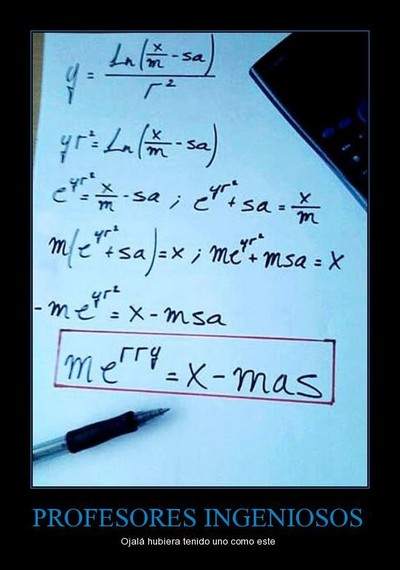 y = Ln(x/m - sa) / r²
yr² = Ln(x/m - sa)
e^yr² = x/m - sa ; e^yr² + sa = x/m
m(e^yr² + sa) = x ; me^yr² + msa = x
- me^yr² = x - msa
me^rry = x - mas
PROFESORES INGENIOSOS
Ojalá hubiera tenido uno como este